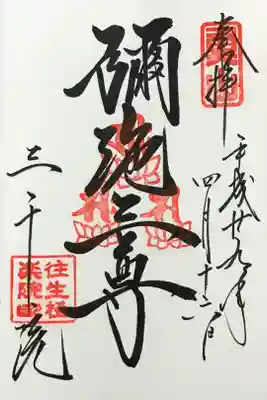 奉拝
平成廿九年
四月十二日
彌陀三尊
三千院
往生極
楽院印